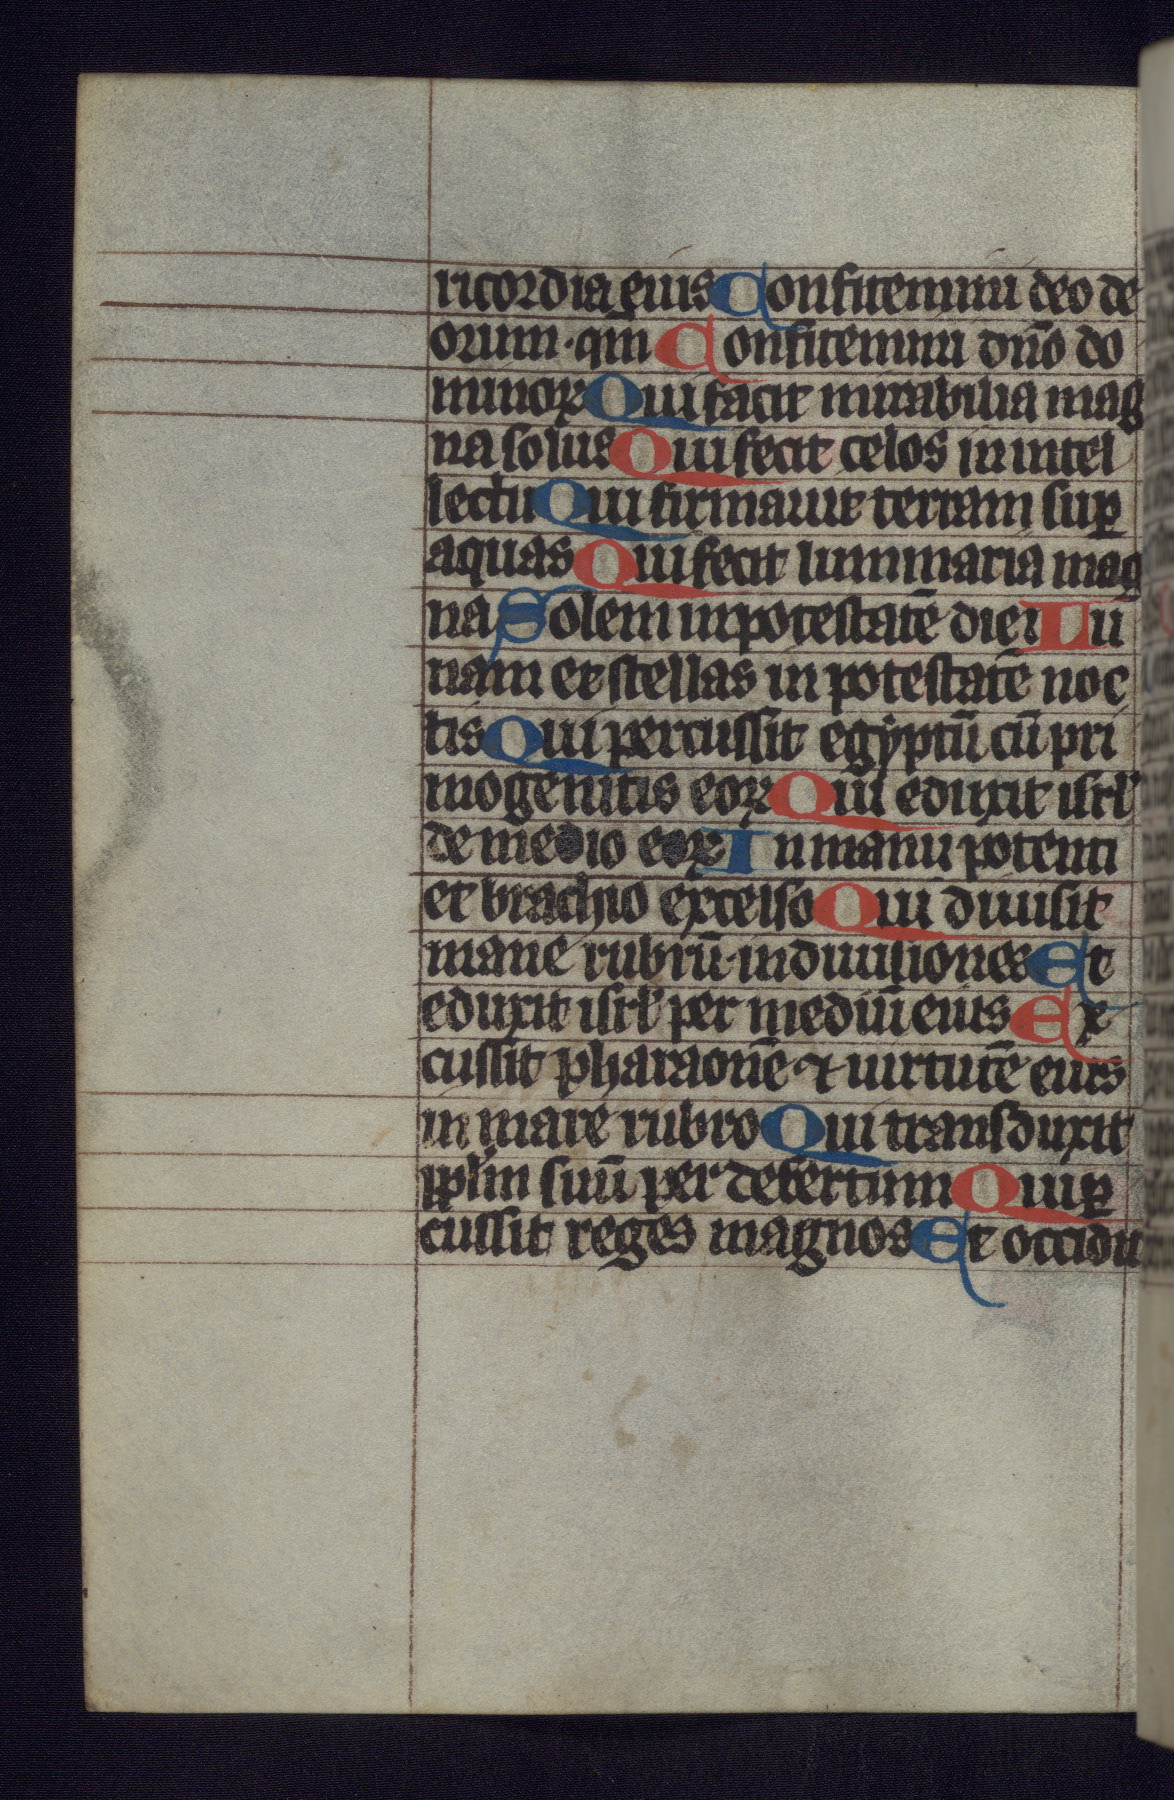 ricordia eius Confitemini deo de
orum · qm̄ Confitemini dn̄o do
minoꝝ Qui facit mirabilia mag
na solus Qui fecit celos in intel
lectu Qui firmauit terram suꝑ
aquas Qui fecit luminaria mag
na Solem in potestatē diei Lu
nam et stellas in potestatē noc
tis Qui percussit egyptū cū pri
mogenitis eoꝝ Qui eduxit isrl̄
de medio eoꝝ In manu potenti
et brachio excelso Qui diuisit
mare rubrū in diuisiones Et
eduxit isrl̄ per mediū eius Ex
cussit pharaonē ⁊ uirtutē eius
in mare rubro Qui transduxit
ppl̄m suū per desertum Qui ꝑ
cussit reges magnos Et occidit